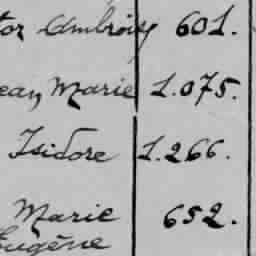 tor Ambroisy 601.
ean Marie 1.075.
Isidore 1.266.
Marie 652.
Eugène